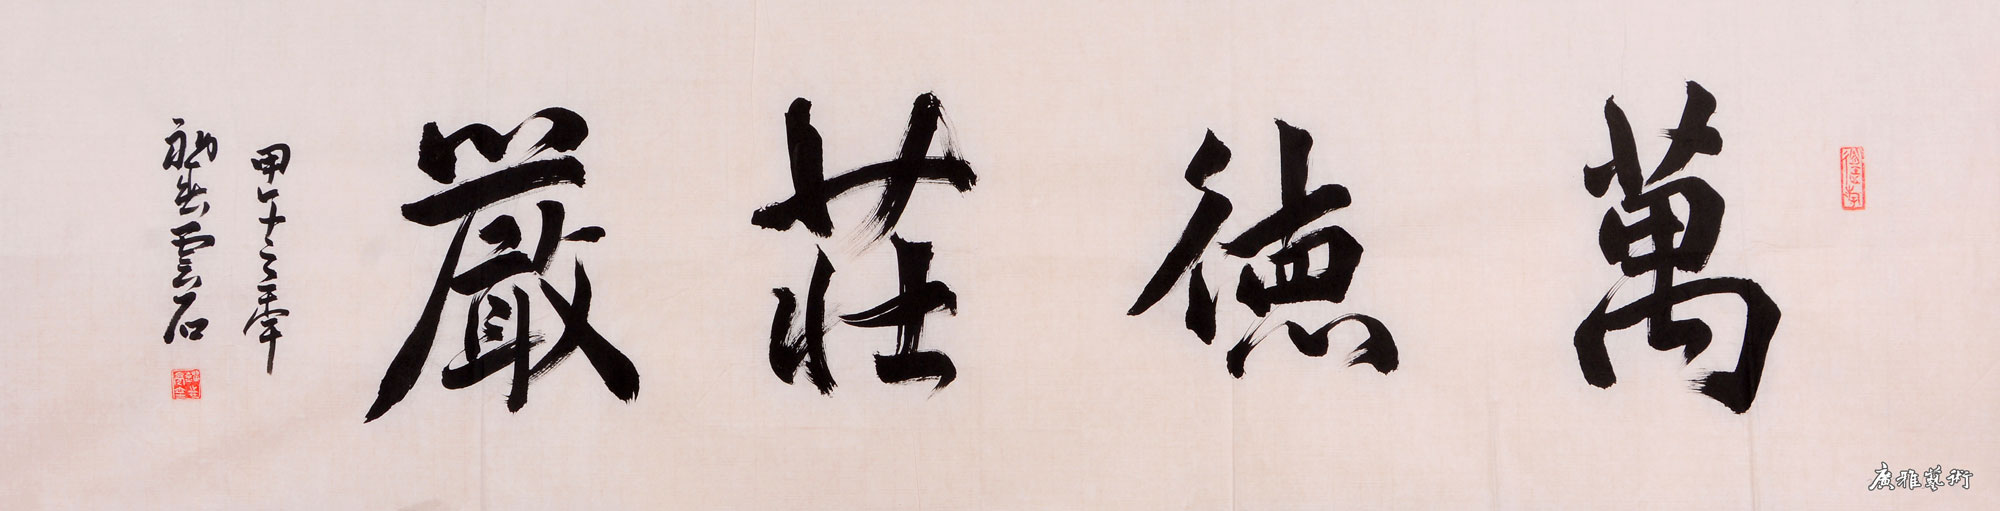 萬德莊嚴
甲午十二年
雲石
廣雅藝術